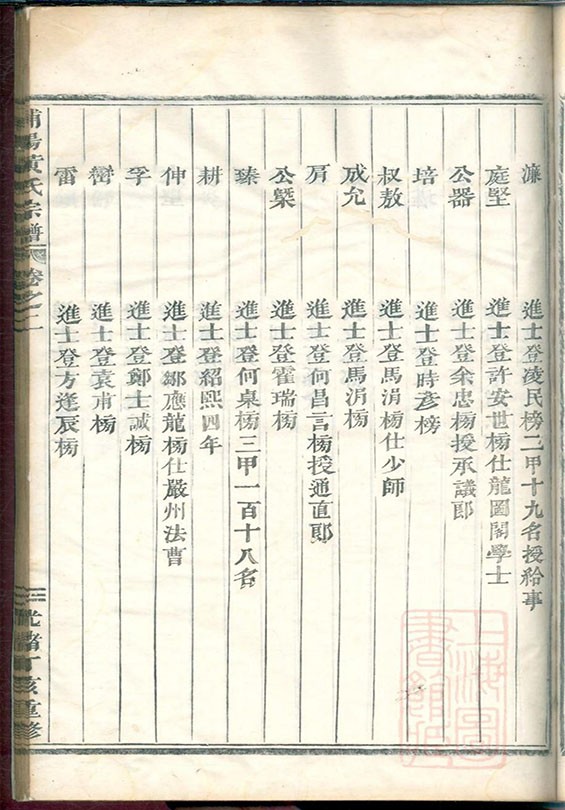 濂 進士登凌民榜二甲十九名授給事
庭堅 進士登許安世榜仕龍圖閣學士
公器 進士登余忠榜授承議郎
培 進士登時彥榜
叔敖 進士登馬涓榜仕少師
成允 進士登馬涓榜
肩 進士登何昌言榜授通直郎
公槩 進士登霍瑞榜
臻 進士登何㮚榜三甲一百十八名
耕 進士登紹熙四年
伸 進士登鄒應龍榜仕嚴州法曹
孚 進士登鄭士誠榜
巒 進士登袁甫榜
雷 進士登方逢辰榜
浦陽黃氏宗譜 卷之一 光緒丁亥重修
上海圖書館藏